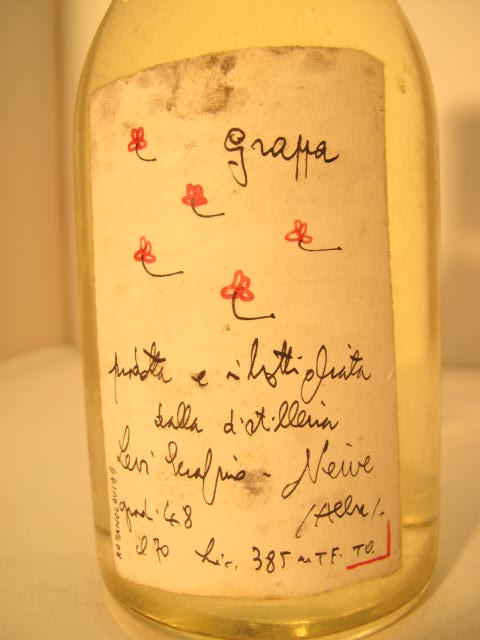 Grappa
prodotta e imbottigliata
dalla distilleria
Levi Serafino - Neive
gradi 48 (Alba).
cl 70 Lic. 385 UTF. TO.
ROMANO LEVI